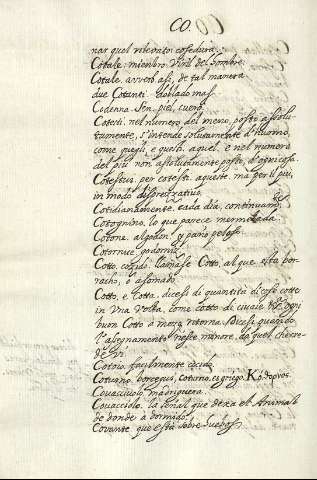 CO.
nar quel riteonto cosedura.
Cotale, miembro Viril del hombre.
Cotale, averb. asi, de tal manera
due Cotanti. doblado mas.
Codenna sen. piel, cuero.
Cotesti, nel numero del meno, posto assolu-
tamente, s'intende solutamente d'huomo,
come quegli e questi. aquel. e nel numero
del piu non assolutamente posto, d'ogni cosa.
Cotestui, per cotesti. aqueste. ma per il piu,
in modo dispreZZativo.
Cotidianamente, cada dia, continuamente
Cotognino, lo que parece mermelada
Cotone, algodon y paño peloso.
Cotornice, godorniz.
Cotto, cozido. llamase Cotto, al que està bor-
racho, o asomado.
Cotto, e Cotta, dicesi di quantità di cose cotte
in Una volta, come cotto di ciuaie &c. ogni
buon Cotto a mezo ritorna. Dicesi quando
l'assegnamento resta minore, da quel che cre-
de vi.
Cotoio facilmente cocido
Coturno borcegui, coturno. es griego. Κόθορνος.
Couacciuolo, madriguera.
Couacciolo, la señal que dexa el Animal
de donde à dormido.
Covante, que està sobre huebos.